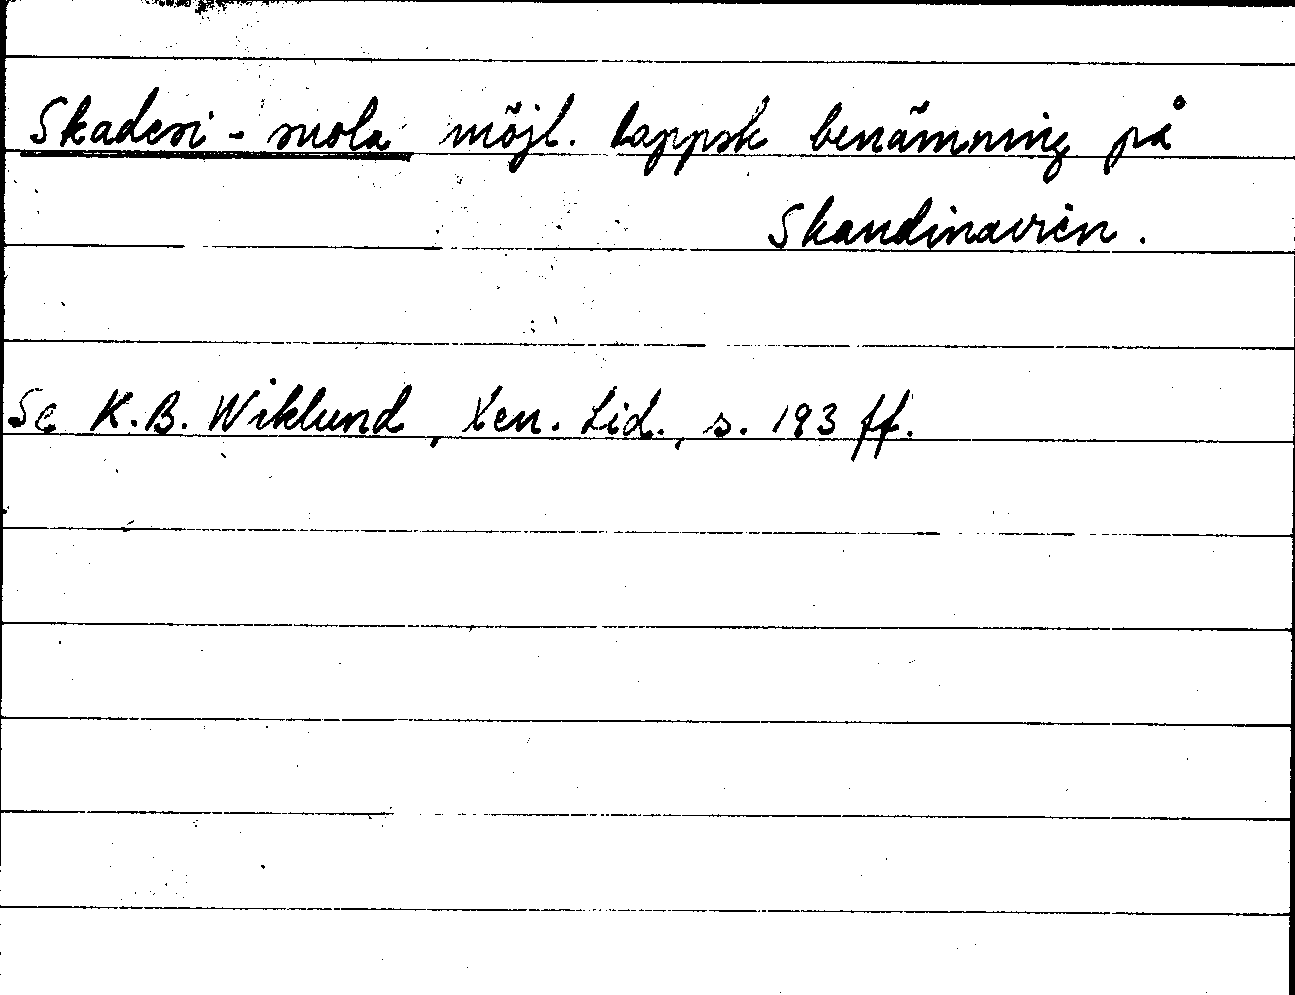 Skadesi-suola möjl. lappsk benämning på
Skandinavien.
Se K.B. Wiklund, Xen. Lid., s. 193 ff.